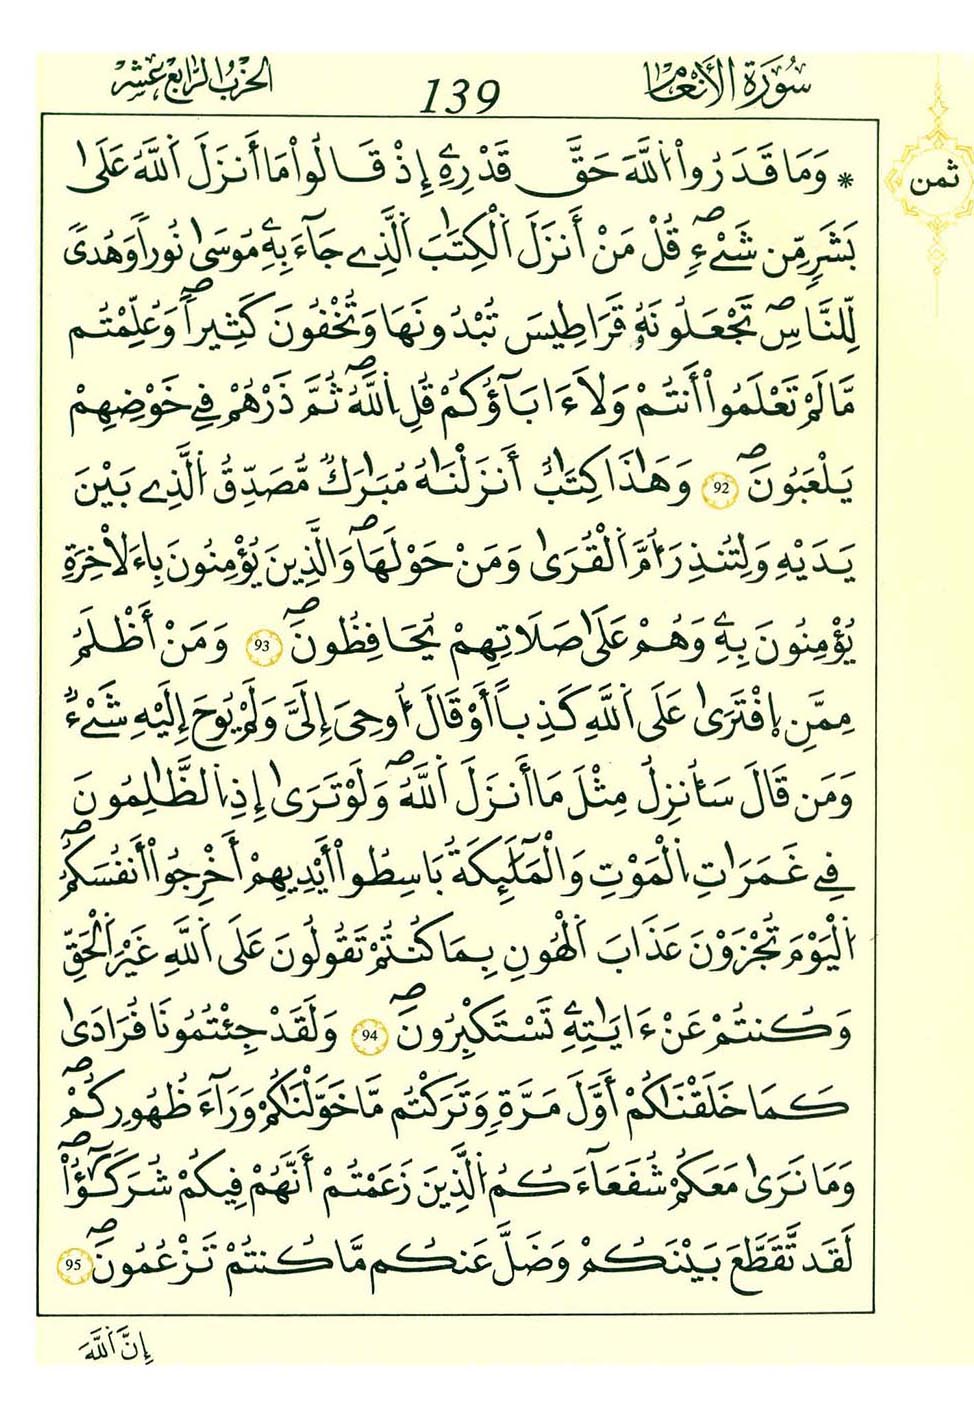 سُورَةُ الأَنْعَامِ 139 الحِزْبُ الرَّابِع عَشَر
ثمن
* وَمَا قَدَرُواْ اُ۬للَّهَ حَقَّ قَدْرِهِۦٓ إِذْ قَالُواْ مَا أَنزَلَ اَ۬للَّهُ عَلَىٰ
بَشَرٖ مِّن شَےْءٖۖ قُلْ مَنْ أَنزَلَ اَ۬لْكِتَٰبَ اَ۬لَّذِے جَآءَ بِهِۦ مُوسَىٰ نُوراٗ وَهُدىٗ
لِّلنَّاسِۖ تَجْعَلُونَهُۥ قَرَاطِيسَ تُبْدُونَهَا وَتُخْفُونَ كَثِيراٗۖ وَعُلِّمْتُم
مَّا لَمْ تَعْلَمُواْ أَنتُمْ وَلَا ءَابَآؤُكُمْ قُلِ اِ۬للَّهُۖ ثُمَّ ذَرْهُمْ فِے خَوْضِهِمْ
يَلْعَبُونَۖ 92 وَهَٰذَا كِتَٰبٌ أَنزَلْنَٰهُ مُبَٰرَكٞ مُّصَدِّقُ اُ۬لَّذِے بَيْنَ
يَدَيْهِ وَلِتُنذِرَ أُمَّ اَ۬لْقُرَىٰ وَمَنْ حَوْلَهَاۖ وَالَّذِينَ يُؤْمِنُونَ بِالَاخِرَةِ
يُؤْمِنُونَ بِهِۦ وَهُمْ عَلَىٰ صَلَاتِهِمْ يُحَافِظُونَۖ 93 وَمَنْ أَظْلَمُ
مِمَّنِ اِ۪فْتَرَىٰ عَلَى اَ۬للَّهِ كَذِباً أَوْ قَالَ أُوحِيَ إِلَيَّ وَلَمْ يُوحَ إِلَيْهِ شَےْءٞ
وَمَن قَالَ سَأُنزِلُ مِثْلَ مَا أَنزَلَ اَ۬للَّهُۖ وَلَوْ تَرَىٰ إِذِ اِ۬لظَّٰلِمُونَ
فِے غَمَرَٰتِ اِ۬لْمَوْتِ وَالْمَلَٰٓئِكَةُ بَاسِطُواْ أَيْدِيهِمْ أَخْرِجُواْ أَنفُسَكُمُۖ
اُ۬لْيَوْمَ تُجْزَوْنَ عَذَابَ اَ۬لْهُونِ بِمَا كُنتُمْ تَقُولُونَ عَلَى اَ۬للَّهِ غَيْرَ اَ۬لْحَقِّ
وَكُنتُمْ عَنْ ءَايَٰتِهِۦ تَسْتَكْبِرُونَۖ 94 وَلَقَدْ جِئْتُمُونَا فُرَادَىٰ
كَمَا خَلَقْنَٰكُمْ أَوَّلَ مَرَّةٖ وَتَرَكْتُم مَّا خَوَّلْنَٰكُمْ وَرَآءَ ظُهُورِكُمْۖ
وَمَا نَرَىٰ مَعَكُمْ شُفَعَآءَكُمُ اُ۬لَّذِينَ زَعَمْتُمْ أَنَّهُمْ فِيكُمْ شُرَكَٰٓؤُاْۖ
لَقَد تَّقَطَّعَ بَيْنَكُمْ وَضَلَّ عَنكُم مَّا كُنتُمْ تَزْعُمُونَۖ 95
إِنَّ اَ۬للَّهَ